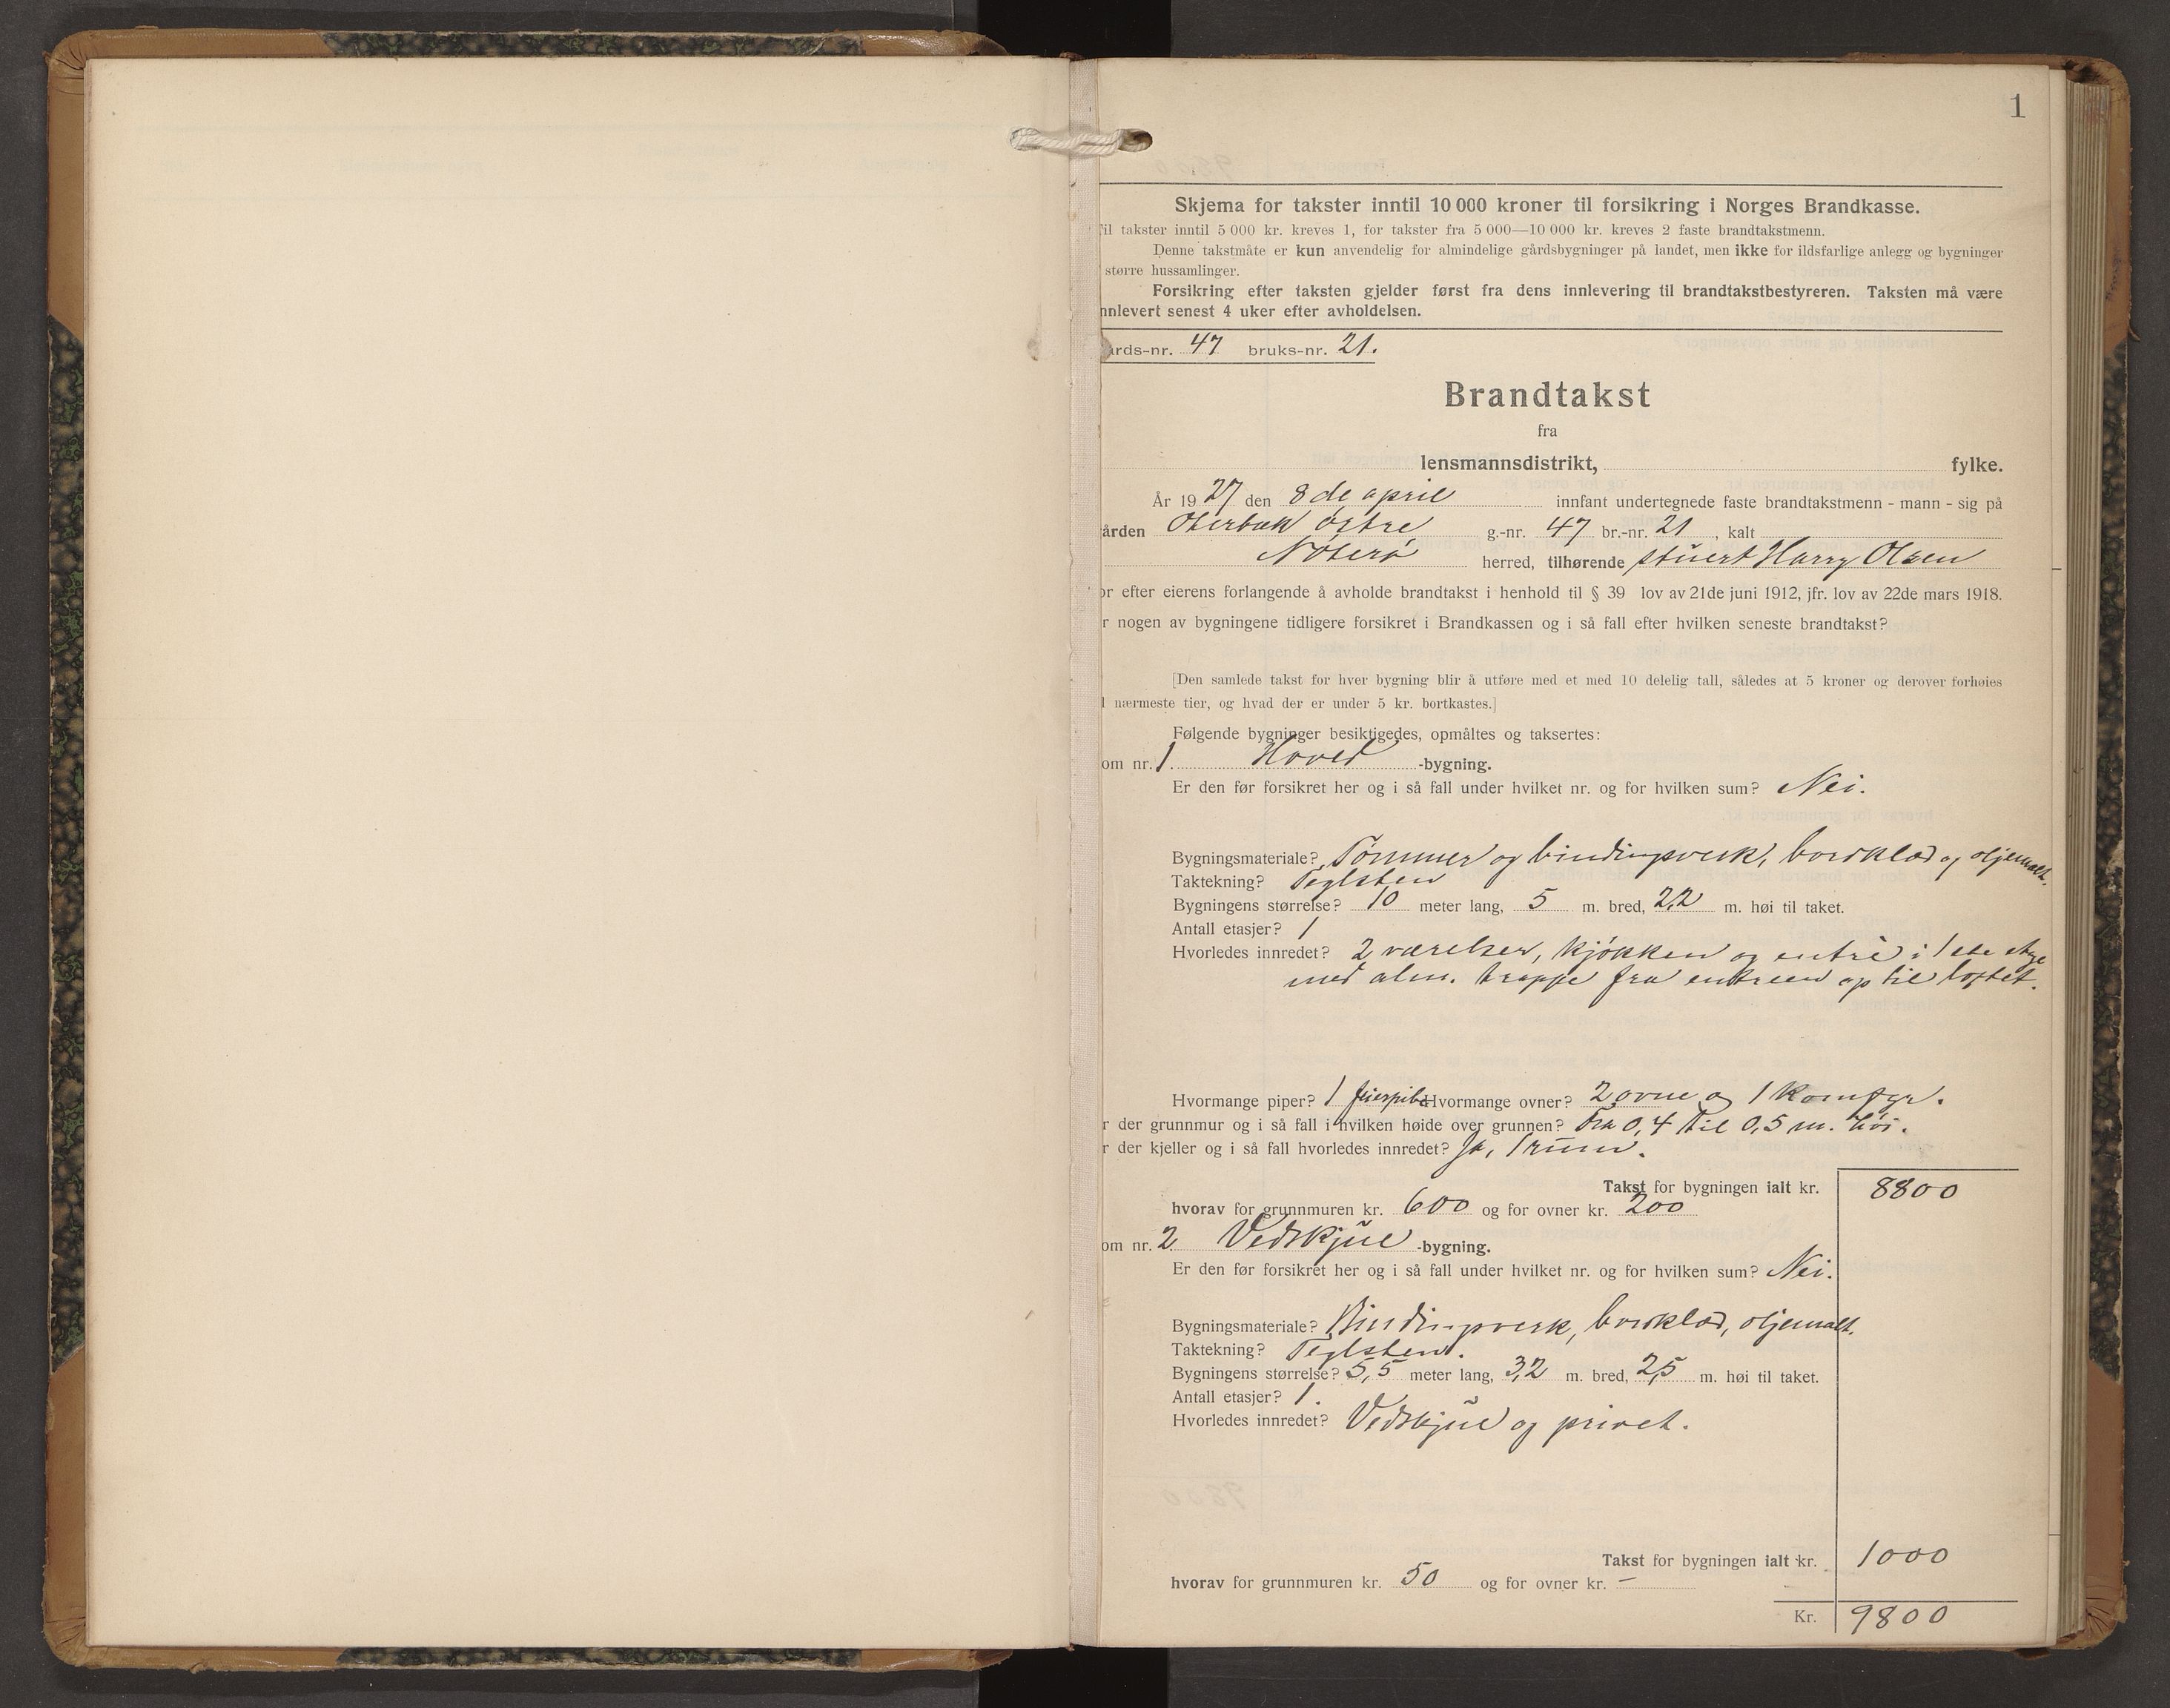 1
Skjema for takster inntil 10 000 kroner til forsikring i Norges Brandkasse.
il takster inntil 5 000 kr. kreves 1, for takster fra 5 000—10 000 kr. kreves 2 faste brandtakstmenn.
Denne takstmåte er kun anvendelig for almindelige gårdsbygninger på landet, men ikke for ildsfarlige anlegg og bygninger
større hussamlinger.
Forsikring efter taksten gjelder først fra dens innlevering til brandtakstbestyreren. Taksten må være
nnlevert senest 4 uker efter avholdelsen.
ards-nr. 47 bruks-nr. 21.
Brandtakst
fra
lensmannsdistrikt, fylke.
År 1927 den 8de april innfant undertegnede faste brandtakstmenn - mann - sig på
ården Oterbæk østre g.-nr. 47 br.-nr. 21, kalt
Nøterø herred, tilhørende stuert Harry Olsen
or efter eierens forlangende å avholde brandtakst i henhold til § 39 lov av 21de juni 1912, jfr. lov av 22de mars 1918.
r nogen av bygningene tidligere forsikret i Brandkassen og i så fall efter hvilken seneste brandtakst?
[Den samlede takst for hver bygning blir å utføre med et med 10 delelig tall, således at 5 kroner og derover forhøies
l nærmeste tier, og hvad der er under 5 kr. bortkastes.]
Følgende bygninger besiktigedes, opmåltes og taksertes:
om nr. 1. Hoved -bygning.
Er den før forsikret her og i så fall under hvilket nr. og for hvilken sum? Nei.
Bygningsmateriale? Tømmer og bindingsverk, bordklæd og oljemalt.
Taktekning? Teglsten
Bygningens størrelse? 10 meter lang, 5 m. bred, 2,2 m. høi til taket.
Antall etasjer? 1
Hvorledes innredet? 2 værelser, kjøkken og entrè i 1ste etge
med alm. trappe fra entreen op til loftet.
Hvormange piper? 1 feierpibe Hvormange ovner? 2 ovne og 1 komfyr.
r der grunnmur og i så fall i hvilken høide over grunnen? Fra 0,4 til 0,5 m. høi.
r der kjeller og i så fall hvorledes innredet? Ja, 1 rum.
Takst for bygningen ialt kr. 8800
hvorav for grunnmuren kr. 600 og for ovner kr. 200
om nr. 2 Vedskjul -bygning.
Er den før forsikret her og i så fall under hvilket nr. og for hvilken sum? Nei.
Bygningsmateriale? Bindingsverk, bordklæd, oljemalt.
Taktekning? Teglsten.
Bygningens størrelse? 5,5 meter lang, 3,2 m. bred, 2,5 m. høi til taket.
Antall etasjer? 1.
Hvorledes innredet? Vedskjul og privet.
Takst for bygningen ialt kr. 1000
hvorav for grunnmuren kr. 50 og for ovner kr. —
Kr. 9800